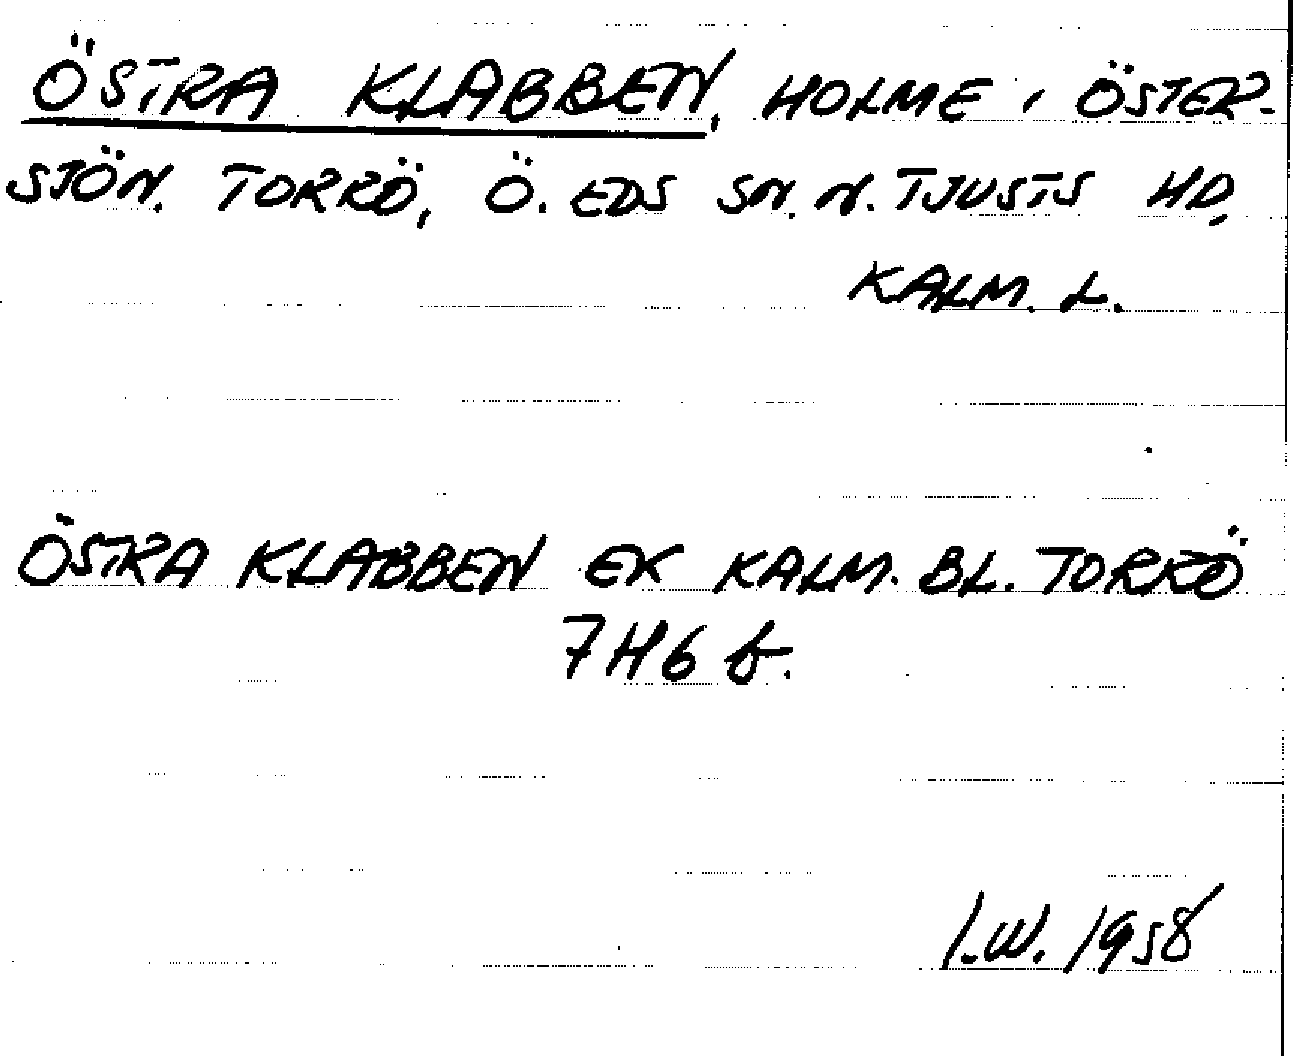 ÖSTRA KLABBEN, HOLME I ÖSTER-
SJÖN. TORRÖ, Ö. EDS SN. N. TJUSTS HD,
KALM. L.
ÖSTRA KLABBEN EK KALM. BL. TORRÖ
7H6 f.
I.W. 1958